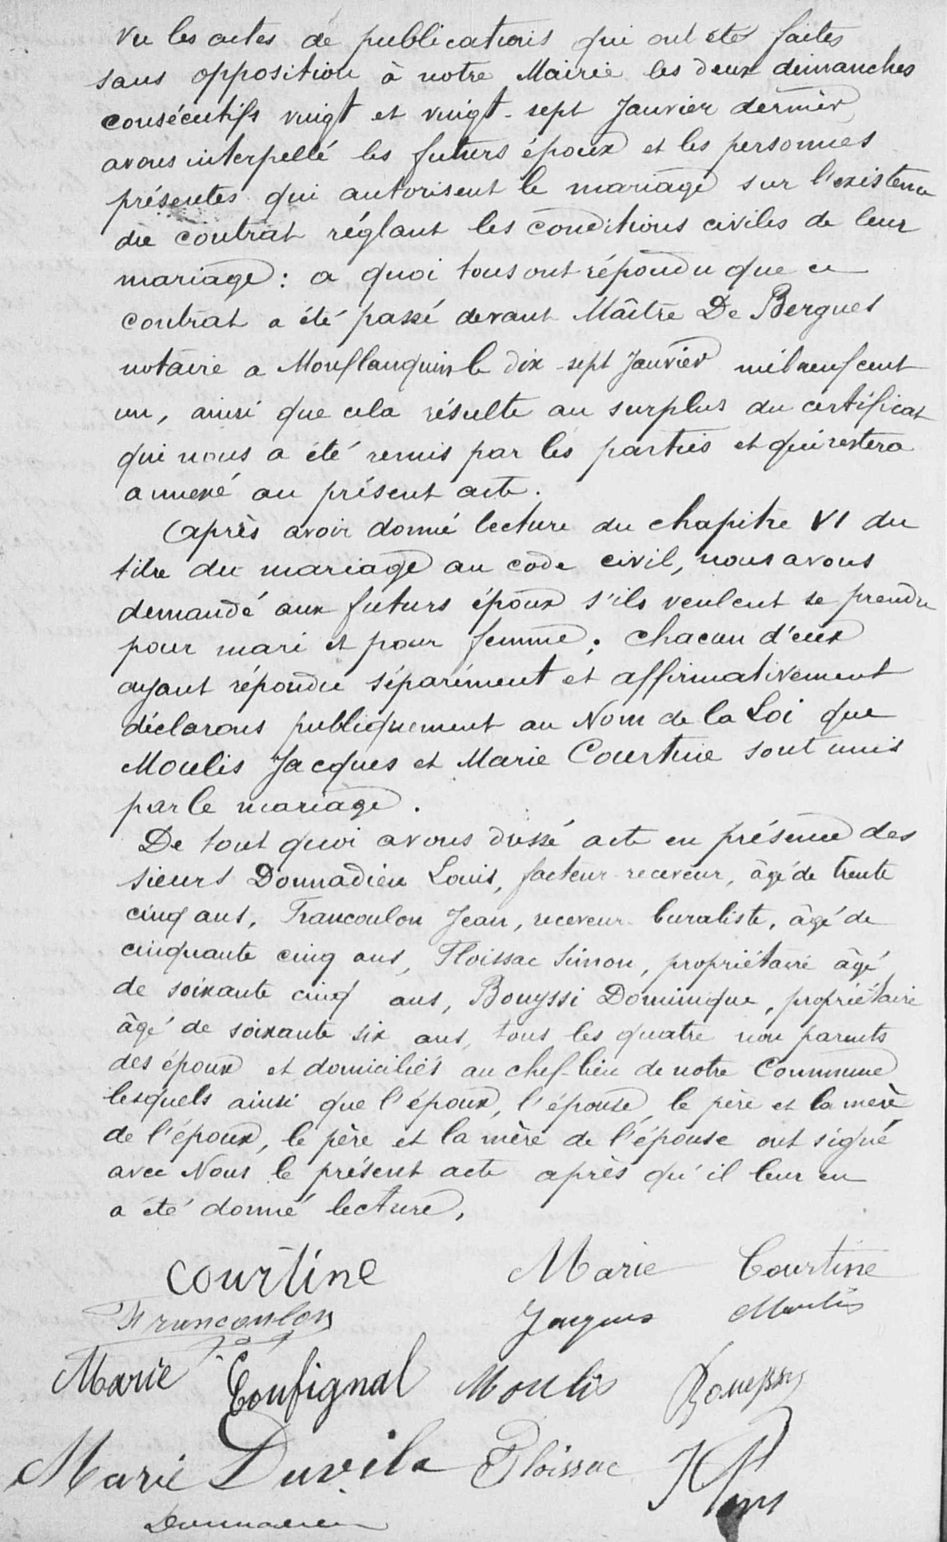 Vu les actes de publications qui ont étés faites
sans opposition à notre Mairie les deux dimanches
consécutifs vingt et vingt-sept Janvier dernier
avons interpellé les futurs époux et les personnes
présentes qui autorisent le mariage sur l'existence
du contrat réglant les conditions civiles de leur
mariage : a quoi tous ont répondu que ce
contrat a été passé devant Maître De Bergues
notaire a Monflanquin le dix-sept Janvier mil neuf cent
un, ainsi que cela résulte au surplus du certificat
qui nous a été remis par les parties et qui restera
annexé au présent acte.
Après avoir donné lecture du chapitre VI du
titre du mariage au code civil, nous avons
demandé aux futurs époux s'ils veulent se prendre
pour mari et pour femme ; chacun d'eux
ayant répondu séparément et affirmativement
déclarons publiquement au Nom de la Loi que
Moulis Jacques et Marie Courtine sont unis
par le mariage.
De tout quoi avons dressé acte en présence des
sieurs Donnadieu Louis, facteur-receveur, âgé de trente
cinq ans, Francoulon Jean, receveur-buraliste, âgé de
cinquante cinq ans, Ploissac Simon, propriétaire âgé
de soixante cinq ans, Bouyssi Dominique, propriétaire
âgé de soixante six ans, tous les quatre non parents
des époux et domiciliés au chef-lieu de notre Commune
lesquels ainsi que l'époux, l'épouse, le père et la mère
de l'époux, le père et la mère de l'épouse ont signé
avec Nous le présent acte après qu'il leur en
a été donné lecture,
Courtine Marie Courtine
Francoulon Jacques Moulis
Marie Confignal Moulis Bouyssy
Marie Duvila Ploissac
Donnadieu